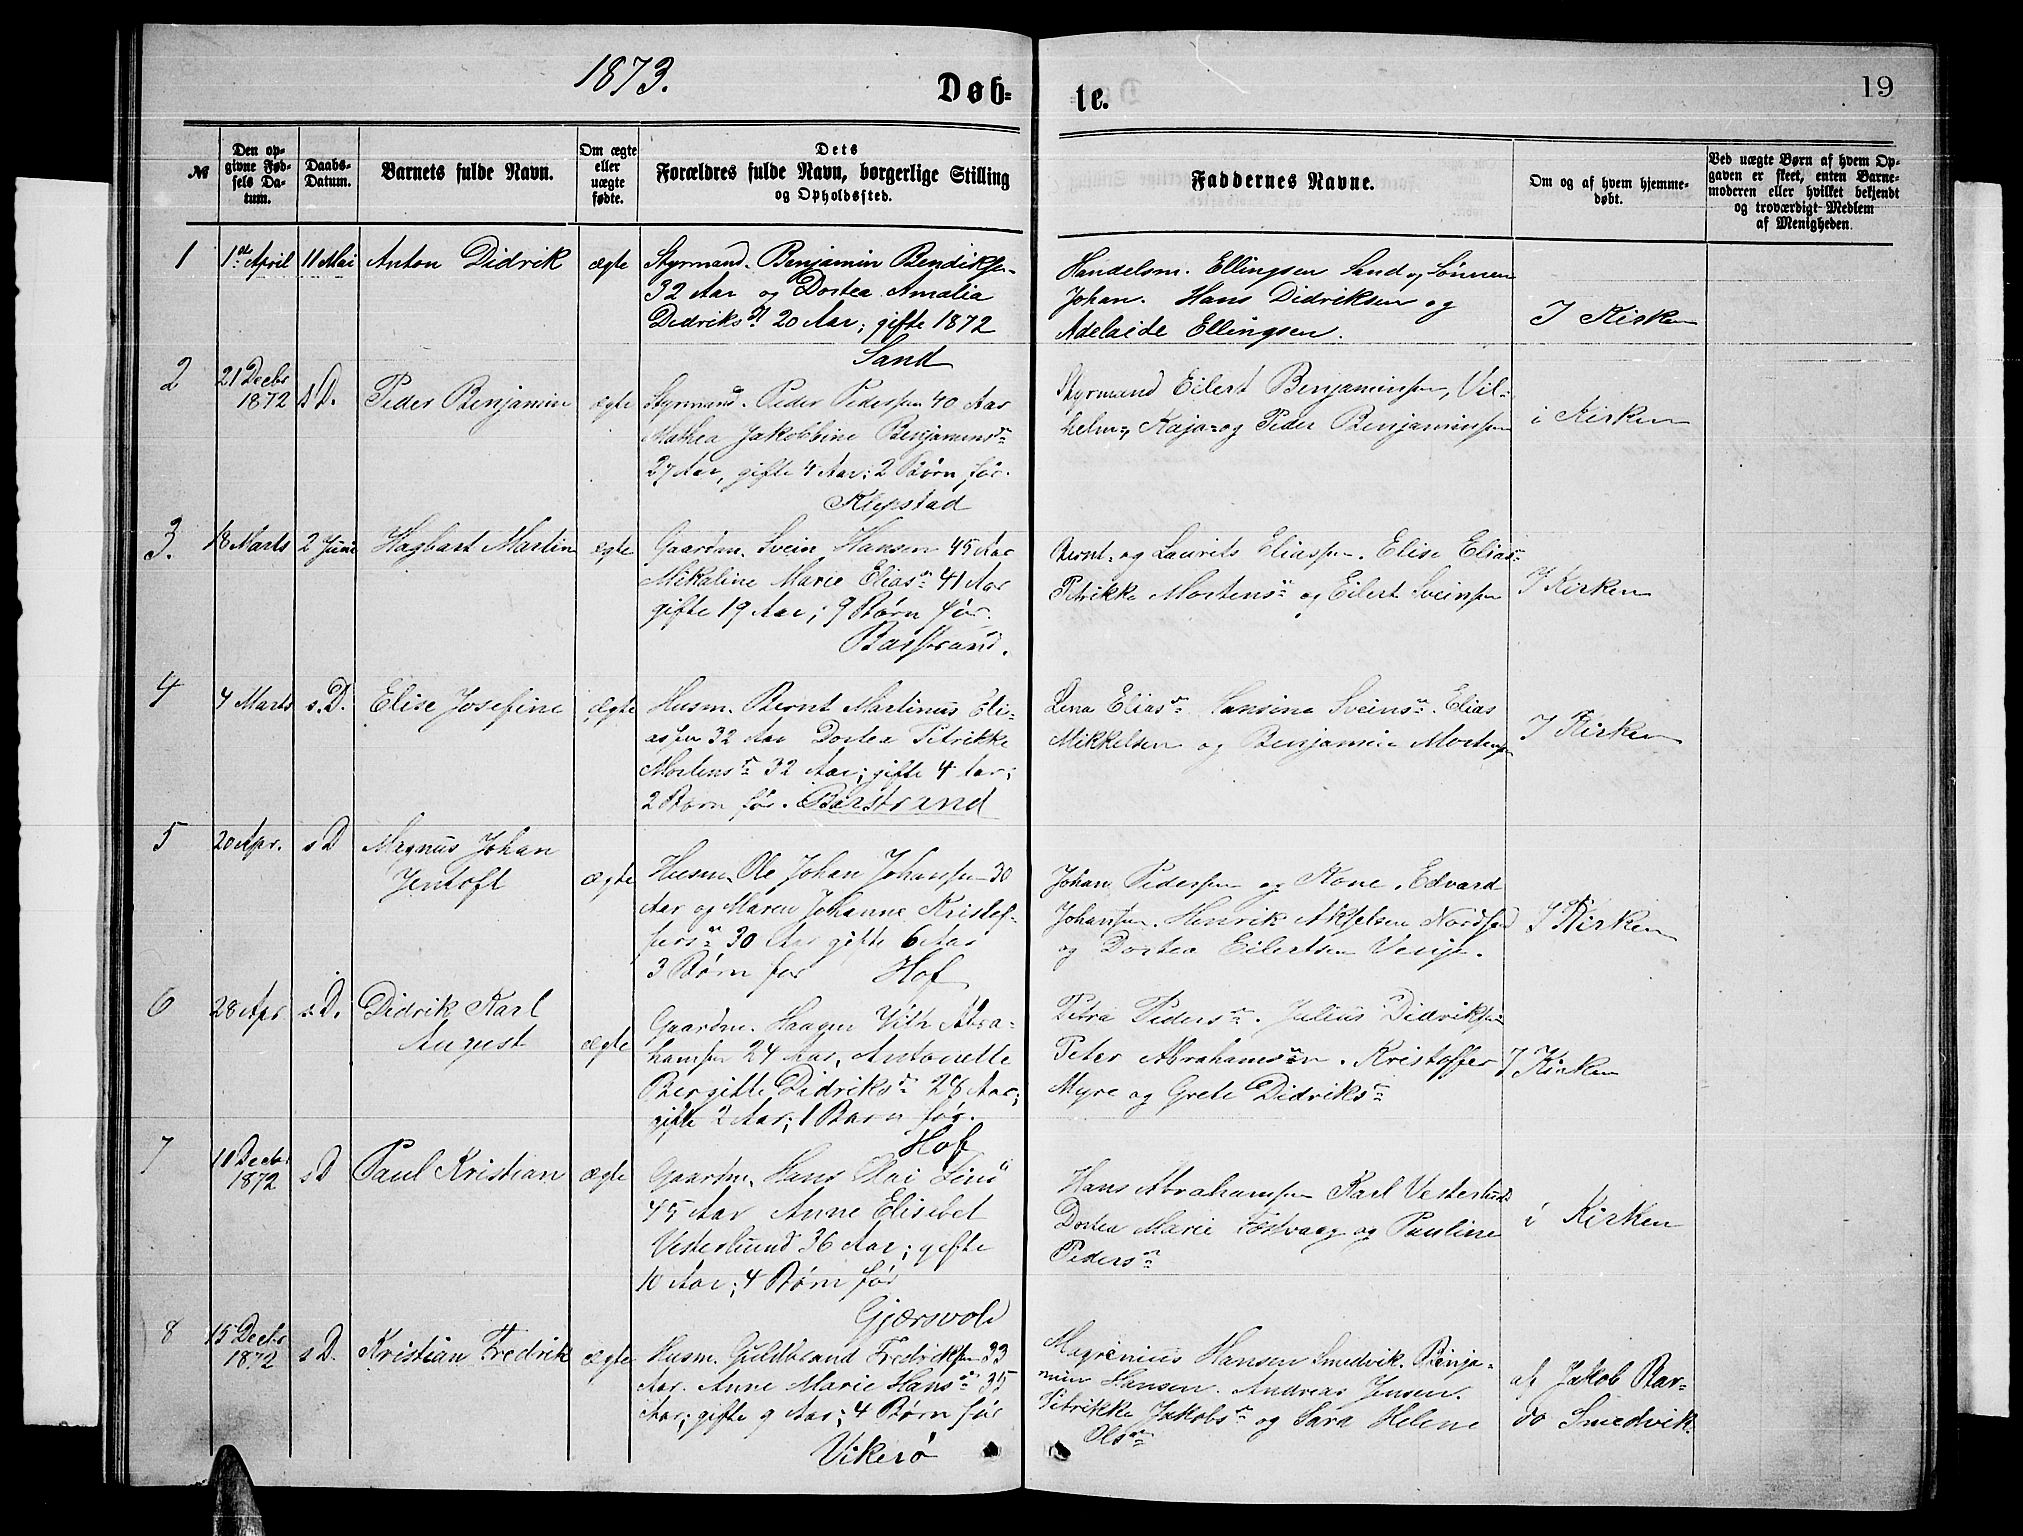 1873.
Døb=
te.
19
№
Den op-
givne Fød-
sels Da-
tum.
Daabs-
Datum.
Barnets fulde Navn.
Om ægte
eller
uægte
fødte.
Dets
Forældres fulde Navn, borgerlige Stilling
og Opholdssted.
Faddernes Navne.
Om og af hvem hjemme-
døbt.
Ved uægte Børn af hvem Op-
gaven er skeet, enten Barne-
moderen eller hvilket bekjendt
og troværdigt Medlem
af Menigheden.
1
1ste April
11 Mai
Anton Didrik
ægte
Styrmand. Benjamin Bendiksen
32 Aar og Dortea Amalia
Didriksdt 20 Aar; gifte 1872
Sand
Handelsm. Ellingsen Sand og Sønnen
Johan. Hans Didriksen og
Adelaide Ellingsen.
I Kirken
2
21 Decbr
1872
s D.
Peder Benjamin
ægte
Styrmand. Peder Pedersen 40 Aar
Mathea Jakobbine Benjaminsdn
27 Aar, gifte 4 Aar; 2 Børn før.
Klepstad
Styrmand Eilert Benjaminsen, Vil-
helm=, Kaja= og Peder Benjaminsen
i Kirken
3.
18 Marts
2 Juni
Hagbart Martin
ægte
Gaardm. Svein Hansen 45 Aar
Mikaline Marie Eliasdn 41 Aar
gifte 19 Aar; 9 Børn før.
Barstrand.
Bernt= og Laurits Eliassen. Elise Eliasdn
Petrikke Mortensdn og Eilert Sveinsen
I Kirken
4
4 Marts
s. D.
Elise Josefine
ægte
Husm. Bernt Martinus Eli-
assen 32 Aar Dortea Petrikke
Mortensdn 32 Aar; gifte 4 Aar;
2 Børn før. Barstrand
Lena Eliasdn Hansine Sveinsdn. Elias
Mikkelsen og Benjamin Mortensen
I Kirken
5
20 Apr.
s D
Magnus Johan
Jentoft
ægte
Husm. Ole Johan Johansen 30
Aar og Maren Johanne Kristof-
fersdn 30 Aar gifte 6 Aar
3 Børn før Hof
Johan Pedersen og Kone. Edvard
Johansen. Henrik Akselsen
og Dortea Eilertsen
I Kirken
6
28 Apr
s. D.
Didrik Karl
August
ægte
Gaardm. Haagen Vith Abra-
hamsen 24 Aar, Antonette
Bergitte Didriksdn 28 Aar;
gifte 2 Aar; 1 Barn før.
Hof
Petra Pedersdn. Julius Didriksen
Peter Abrahamsen. Kristoffer
Myre og Grete Didriksdn
I Kirken
7
10 Decbr
1872
s D
Paul Kristian
ægte
Gaardm. Hans Olai
45 Aar Anne Elisebet
Vesterlund 36 Aar; gifte
10 Aar; 4 Børn før
Gjærsvold
Hans Abrahamsen Karl Vesterlund
Dortea Marie Festvaag og Pauline
Pedersdn
i Kirken
8
15 Decbr
1872
s D.
Kristian Fredrik
ægte
Husm. Guldbrand Fredriksen 33
Aar. Anne Marie Hansdn 35
Aar; gifte 9 Aar; 4 Børn før
Vikerø
Magrenius Hansen Smedvik. Benja-
min Hansen. Andreas Jensen.
Petrikke Jakobsdn og Sara Helene
Olsdn
af Jakob Bar-
do Smedvik.